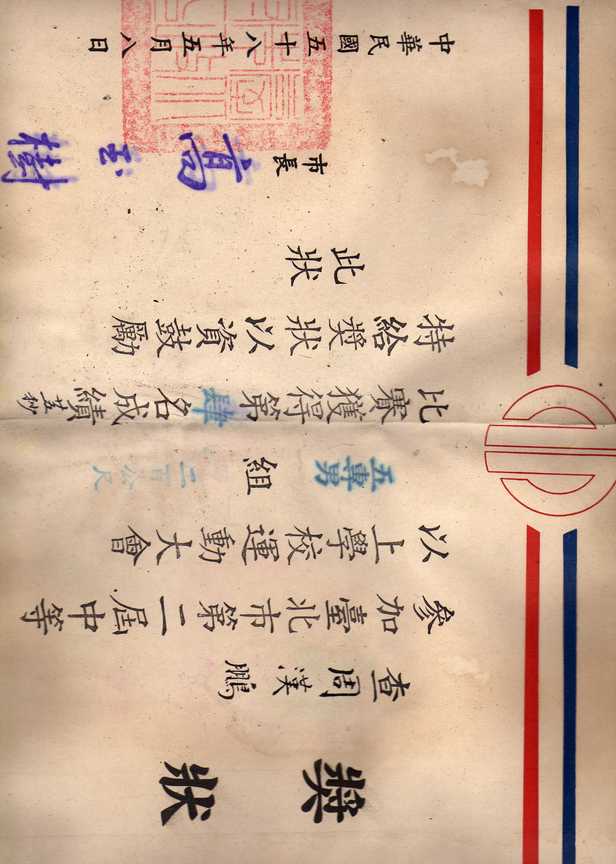 獎狀
查周漢鵬
參加臺北市第二屆中等
以上學校運動大會
五專男組二百公尺
比賽獲得第肆名成績
特給獎狀以資鼓勵
此狀
市長高玉樹
中華民國五十八年五月八日